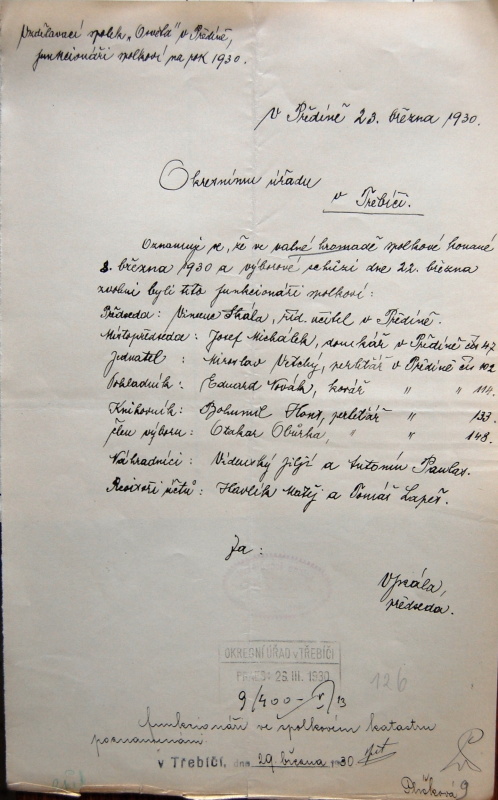 Vzdělávací spolek „Osvěta" v Předíně,
funkcionáři spolkoví na rok 1930.
V Předíně 23. března 1930.
Okresnímu úřadu
v Třebíči.
Oznamuje se, že ve valné hromadě spolkové konané
2. března 1930 a výborové schůzi dne 22. března
zvoleni byli tito funkcionáři spolkoví:
Předseda: Vincenc Skála, říd. učitel v Předíně.
Místopředseda: Josef Michálek, domkář v Předíně čís 47
Jednatel : Miroslav Vrtchý, perletář v Předíně čís 102
Pokladník: Eduard Novák, kovář „ „ 114.
Knihovník: Bohumil Honz, perletář „ 133.
Člen výboru: Otakar Obůrka, „ „ 148.
Náhradníci: Vídenský Jiljí a Antonín Pavlas.
Revisoři účtů: Havlík Matěj a Tomáš Lapeš.
Za:
VSkála,
předseda.
OKRESNÍ ÚŘAD v TŘEBÍČI
26. III. 1930
9/400-V/13
126
funkcionáři ve spolkovém katastru
poznamenáni
v Třebíči, dne 29. března 1930
9